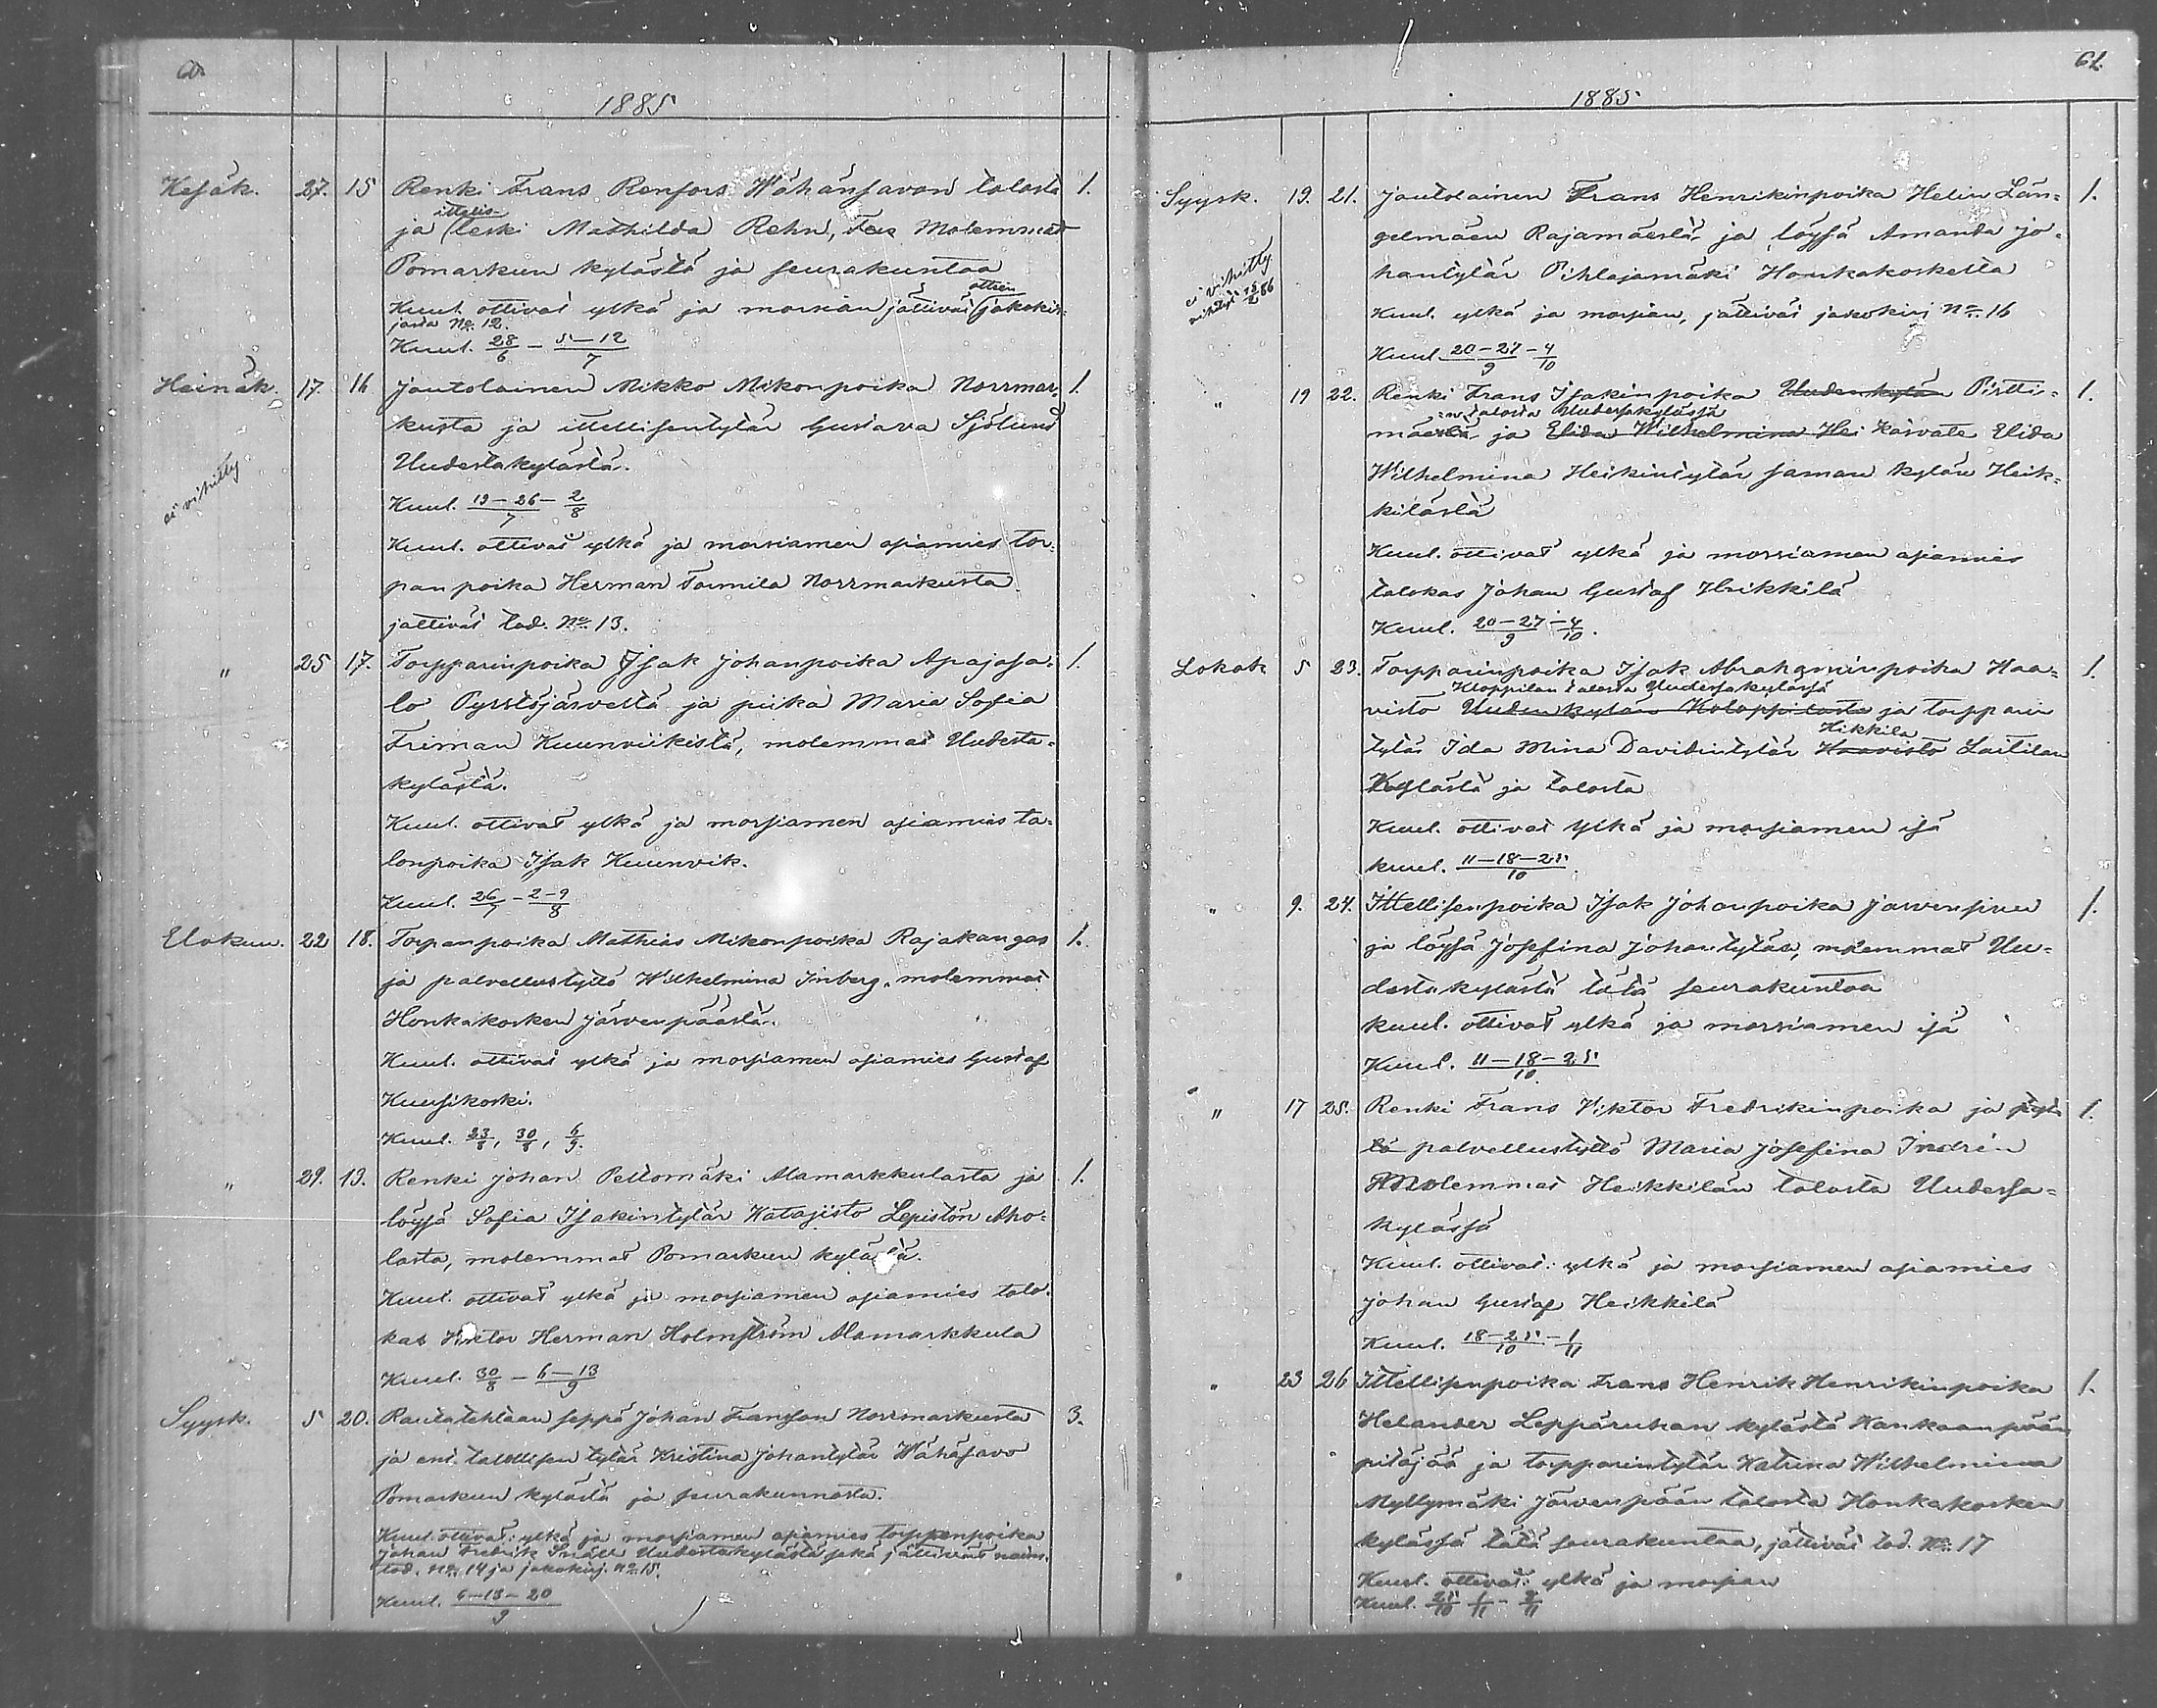 60.
1885
Kesäk. 27. 15 Renki Frans Renfors Wähänsavon talosta 1.
ittelis-
ja leski Mathilda Rehn, Molemmat
Pomarkun kylästä ja seurakuntaa
otteen
Kuul. ottivat ylkä ja morsian jättivät jakokir-
jasta No. 12.
Kuul. 28/6 - 5-12/7
Heinäk. 17. 16 Jautolainen Mikko Mikonpoika Norrmar- 1.
kusta ja ittellisentytär Gustava Sjölund
Uudestakylästä.
ei vihitty
Kuul. 19-26/7 - 2/8
Kuul. ottivat ylkä ja morsiamen asiamies tor-
panpoika Herman Tommila Norrmarkusta
jättivät tod. No. 13.
" 25 17. Torpparinpoika Isak Johanpoika Apajasa- 1.
lo Pyssköjärveltä ja piika Maria Sofia
Friman Kuunviikistä, molemmat Uudesta-
kylästä.
Kuul. ottivat ylkä ja morsiamen asiamies ta-
lonpoika Isak Kuunvik.
Kuul. 26/7 - 2-9/8
Elokuu. 22 18. Torpanpoika Mathias Mikonpoika Rajakangas 1.
ja palvellustyttö Wilhelmina Inberg, molemmat
Honkakosken Järvenpäästä.
Kuul. ottivat ylkä ja morsiamen asiamies Gustaf
Kuusikoski.
Kuul. 23/8, 30/8, 6/9.
" 29. 19. Renki Johan Peltomäki Alamarkkulasta ja 1.
löysä Sofia Isakintytär Katajisto Lepistön Aho-
lasta, molemmat Pomarkun kylästä.
Kuul. ottivat ylkä ja morsiamen asiamies talo-
kas Viktor Herman Holmström Alamarkkula
Kuul. 30/8 - 6-13/9
Syysk. 5 20. Rautatehtaan seppä Johan Fransson Norrmarkusta 3.
ja ent. talollisen tytär Kristina Johantytär Wähäsavo
Pomarkun kylästä ja seurakunnasta.
Kuul. ottivat: ylkä ja morsiamen asiamies torppanpoika
Johan Fredrik Snäll Uudestakylästä sekä jättivät naim.
tod. No. 14 ja jakokirj. No. 15.
Kuul. 6-13-20/9
61.
1885
Syysk. 19. 21. Jautolainen Frans Henrikinpoika Helin Län- 1.
gelmäen Rajamäestä ja löysä Amanda Jo-
hantytär Pihlajamäki Honkakoskelta
ei vihitty
vihityt 15/2 86
Kuul. ylkä ja morsian, jättivät jakokirj No. 16
Kuul. 20-27/9 - 4/10
" 19 22. Renki Frans Isakinpoika Uudenkylän Pirtti- 1.
-n talosta Uudessakylässä
mäestä ja Elida Wilhelmina Hei Kasvate Elida
Wilhelmina Heikintytär saman kylän Heik-
kilästä
Kuul. ottivat ylkä ja morsiamen asiamies
talokas Johan Gustaf Heikkilä
Kuul. 20-27/9 - 4/10.
Lokak 5 23. Torpparinpoika Isak Abrahaminpoika Haa- 1.
Kloppilan talosta Uudessakylässä
visto Uudenkylän Koloppilasta ja torpparin
Hikkila
tytär Ida Mina Davidintytär Haavisto Laitilan
Kylästä ja talosta
Kuul. ottivat ylkä ja morsiamen isä
kuul. 11-18-25/10.
" 9. 24. Ittellisenpoika Isak Johanpoika Järvensivu 1.
ja löysä Josefina Johantytär, molemmat Uu-
destakylästä tätä seurakuntaa
kuul. ottivat ylkä ja morsiamen isä
Kuul. 11-18-25/10.
" 17 25. Renki Frans Viktor Fredrikinpoika ja 1.
palvellustyttö Maria Josefina Indrén
Molemmat Heikkilän talosta Uudessa-
kylässä
Kuul. ottivat: ylkä ja morsiamen asiamies
Johan Gustaf Heikkilä
Kuul. 18-25/10 - 1/11
" 23 26 Ittellisenpoika Frans Henrik Henrikinpoika 1.
Helander Leppäruhan kylästä Kankaanpään
pitäjää ja torpparintytär Katrina Wilhelmina
Myllymäki Järvenpään talosta Honkakosken
kylässä tätä seurakuntaa, jättivät tod. No. 17
Kuul. ottivat: ylkä ja morsian
Kuul. 25/10 1/11 - 8/11